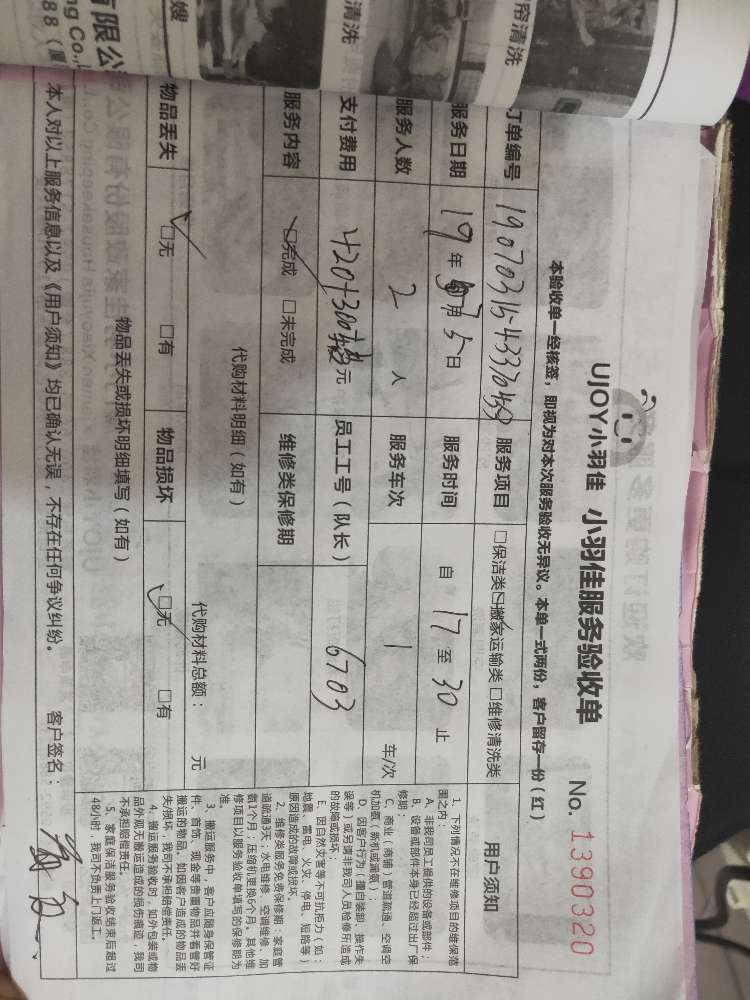 嫂
清洗
帘清洗
有限公
ng Co.,
88（厦
UJOY小羽佳 小羽佳服务验收单 No. 1390320
本验收单一经核签，即视为对本次服务验收无异议。本单一式两份，客户留存一份（红）
订单编号 服务项目 □保洁类 □搬家运输类 □维修清洗类
服务日期 19年 7月 5日 服务时间 自 17 至 30 止
服务人数 2 人 服务车次 1 车/次
支付费用 420+300 元 员工工号（队长） 6703
服务内容 □完成 □未完成 维修类保修期
代购材料明细（如有）
代购材料总额： 元
物品丢失 □无 □有 物品损坏 □无 □有
物品丢失或损坏明细填写（如有）
本人对以上服务信息以及《用户须知》均已确认无误，不存在任何争议纠纷。 客户签名：
用户须知
1、下列情况不在维修项目的维保范
围之内：
A、非我司员工提供的设备或部件；
B、设备或部件本身已经超过出厂保
修期；
C、商业（商铺）管道疏通、空调空
机加氨（新机或漏氨）；
D、因客户行为（擅自装卸、操作失
误等）或另请非我司人员检修所造成
的故障或损坏；
E、因自然灾害等不可抗拒力（如：
地震、雷电、火灾、停电、短路等）
原因造成的故障或损坏。
2、维修类服务免费保修期：家庭管
道疏通3天，水电维修、空调维修、加
氨1个月；压缩机更换6个月。其他维
修项目以服务验收单填写的保修期为
准。
3、搬运服务中，客户应随身保管证
件、首饰、现金等贵重物品并看管好
搬运的物品。如因客户造成的物品丢
失/损坏，我司不承担赔偿责任。
4、搬运服务验收后，如外包装或物
品外观无搬运造成的损伤痕迹，我司
不承担赔偿责任。
5、家庭保洁服务验收结束后超过
48小时，我司不负责上门返工。